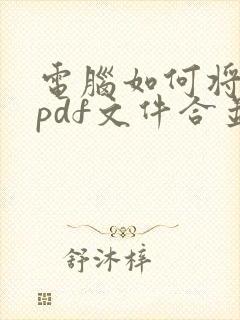 電腦如何將
pdf文件合並
舒沐梓